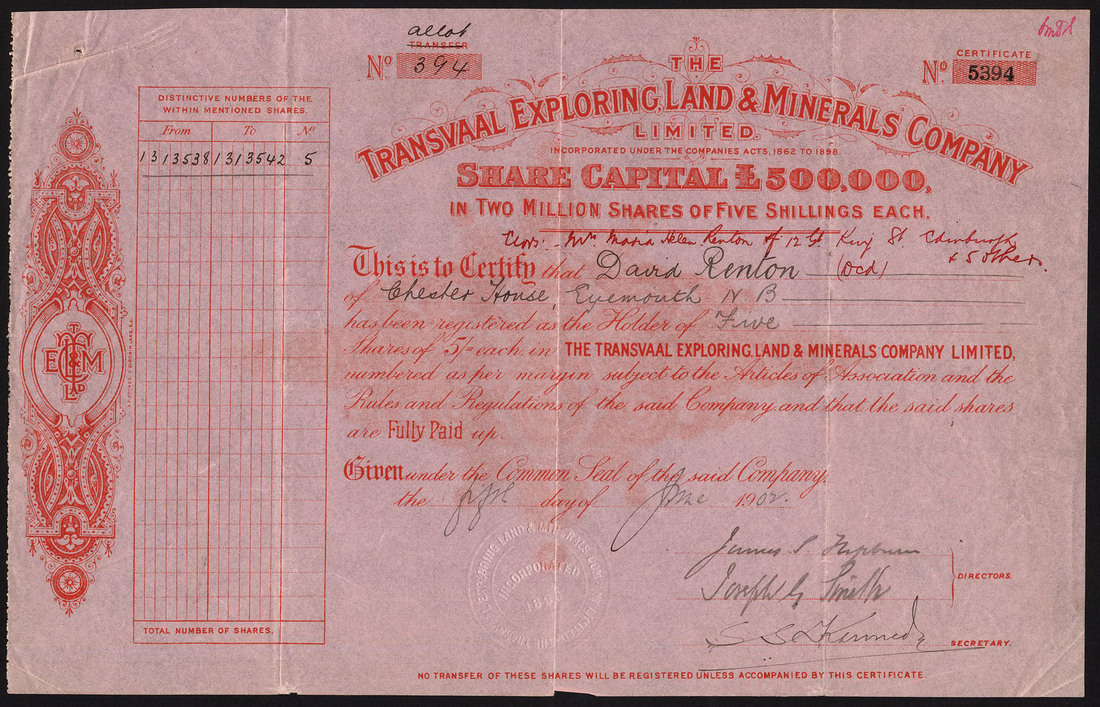 allot
TRANSFER
No. 394
CERTIFICATE
No. 5394
THE
TRANSVAAL EXPLORING, LAND & MINERALS COMPANY
LIMITED.
INCORPORATED UNDER THE COMPANIES ACTS, 1862 TO 1898.
SHARE CAPITAL £500,000,
IN TWO MILLION SHARES OF FIVE SHILLINGS EACH.
DISTINCTIVE NUMBERS OF THE
WITHIN MENTIONED SHARES.
From To No.
1313538 1313542 5
TOTAL NUMBER OF SHARES.
Mrs Maria Helen Renton of 12 Gt King St. Edinburgh
& 5 others.
This is to Certify that David Renton (Dcd)
of Chester House, Eyemouth N B
has been registered as the Holder of Five
Shares of 5/= each in THE TRANSVAAL EXPLORING, LAND & MINERALS COMPANY LIMITED,
numbered as per margin subject to the Articles of Association and the
Rules and Regulations of the said Company, and that the said shares
are Fully Paid up.
Given under the Common Seal of the said Company,
the fifth day of June 1902.
James S. Hepburn
Joseph G Smith
DIRECTORS.
S S Kennedy
SECRETARY.
NO TRANSFER OF THESE SHARES WILL BE REGISTERED UNLESS ACCOMPANIED BY THIS CERTIFICATE.